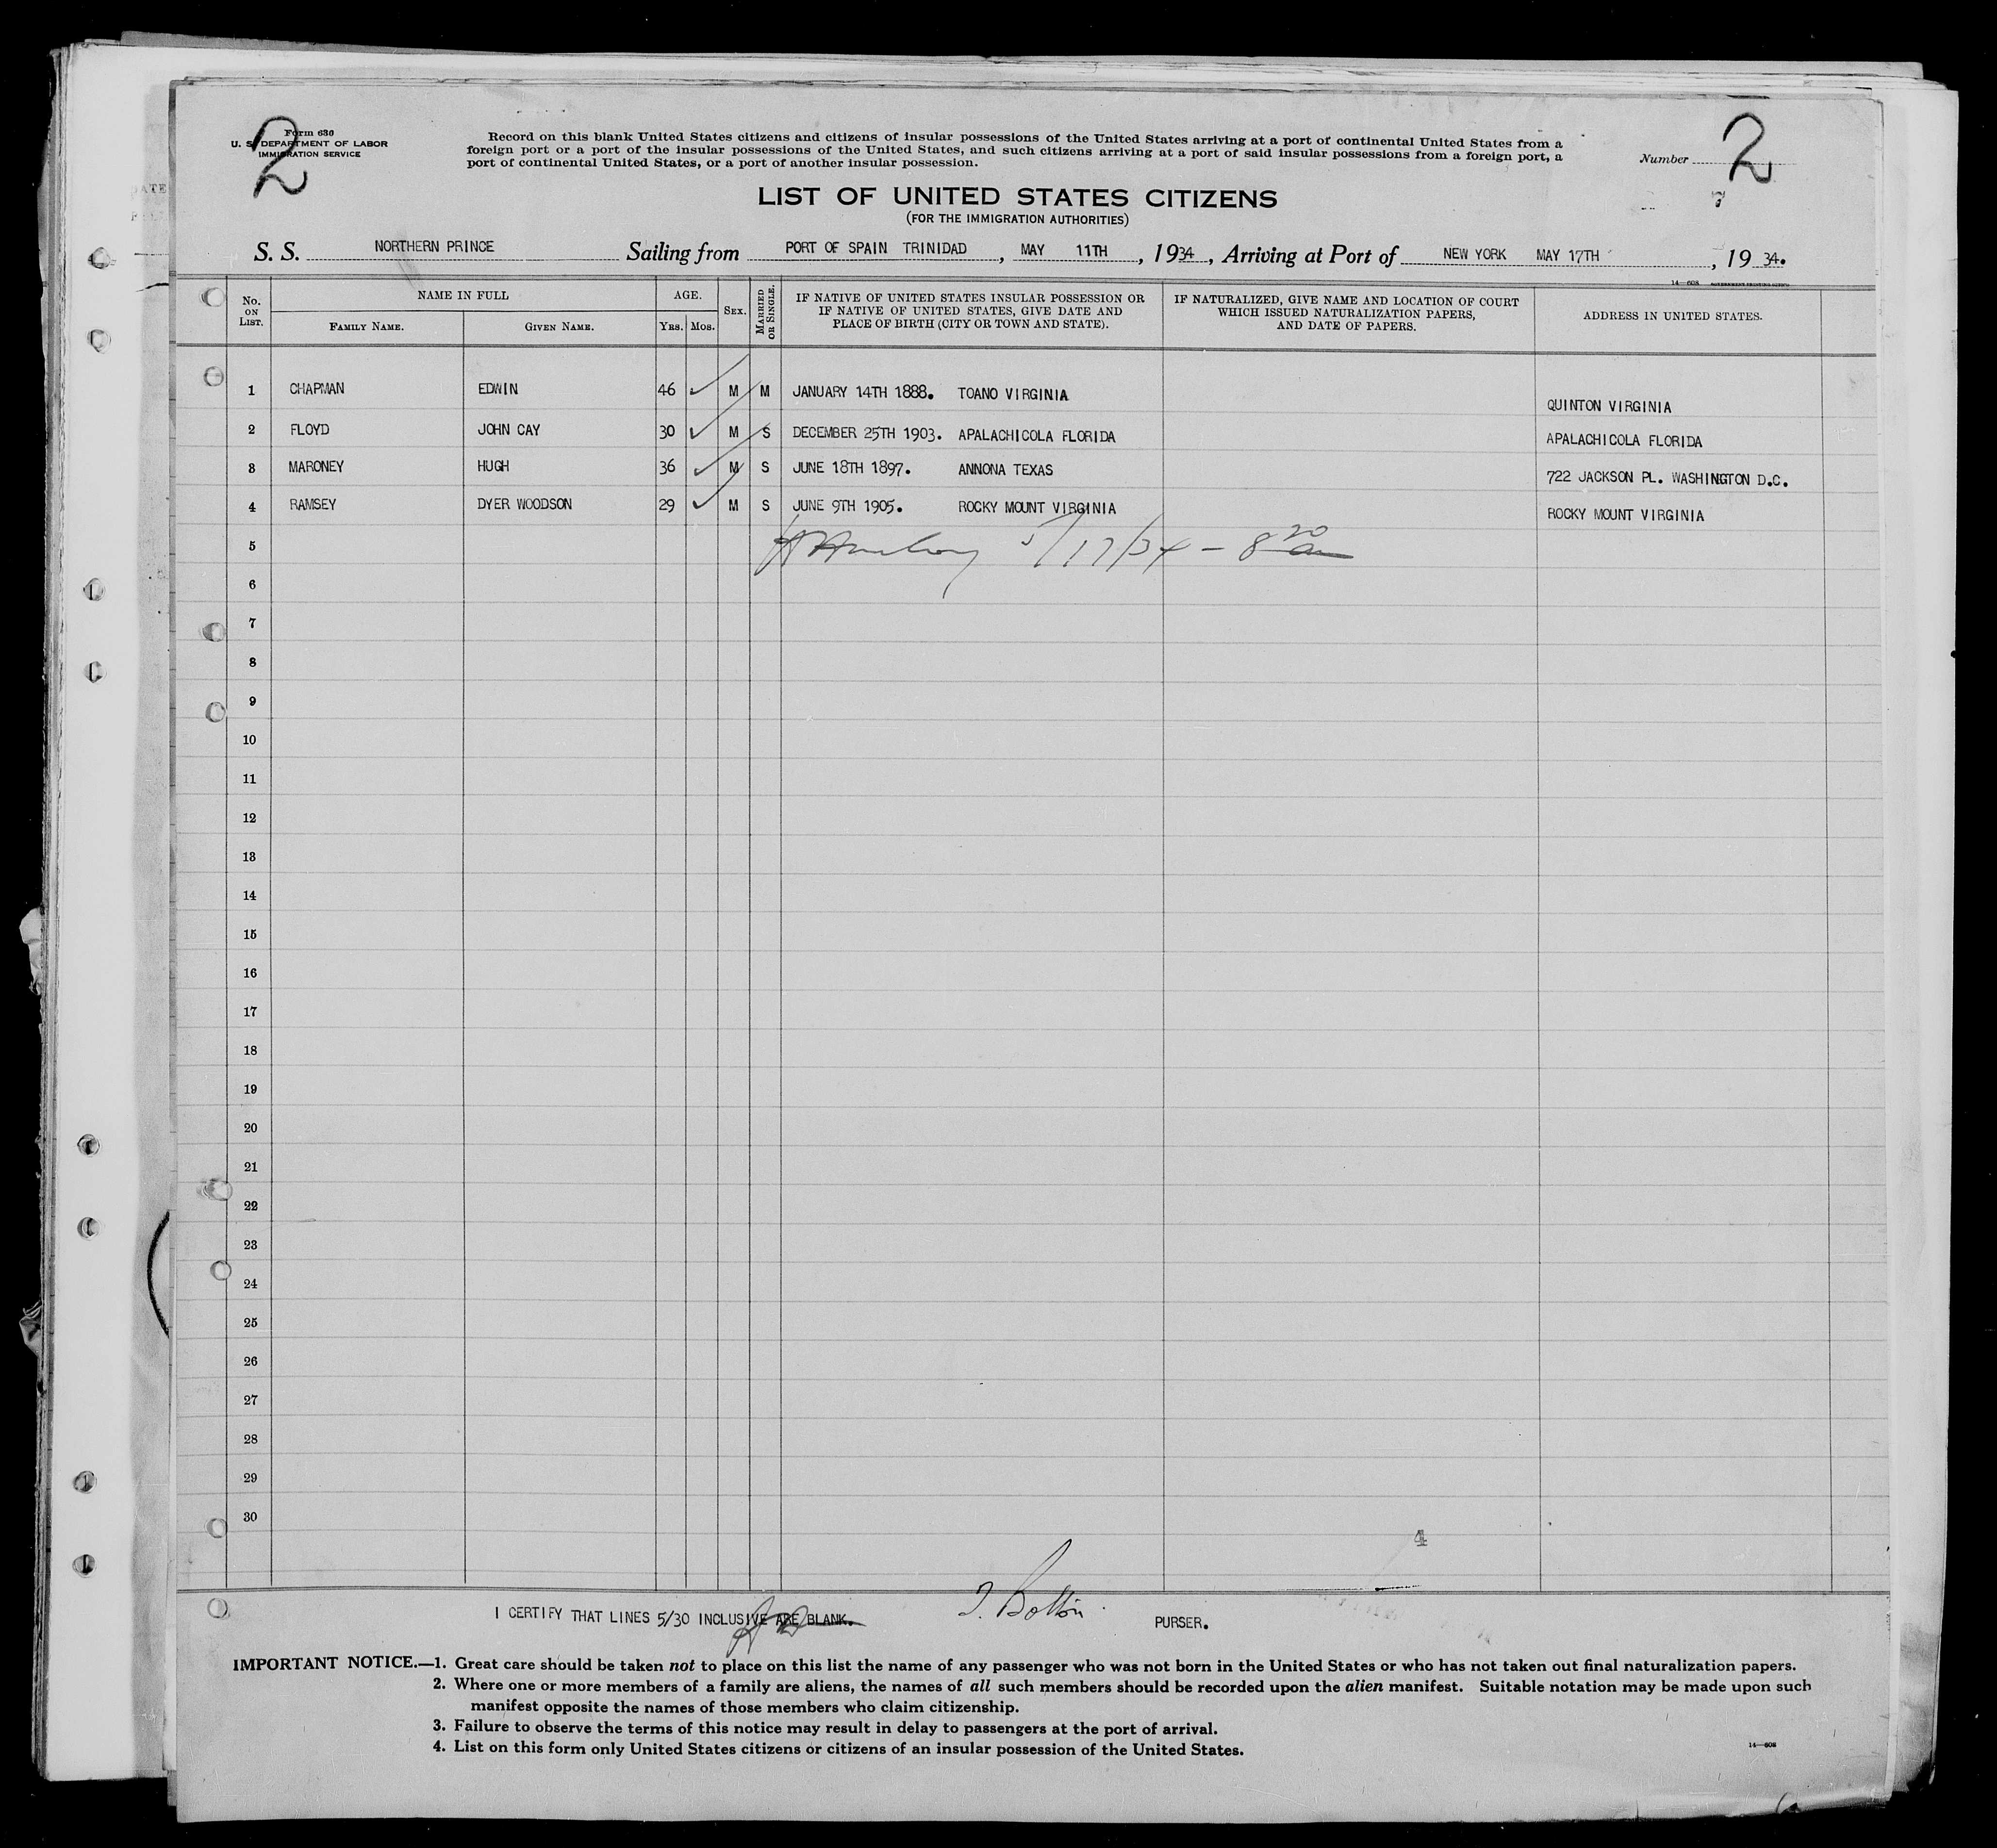 2
Form 630
U. S. DEPARTMENT OF LABOR
IMMIGRATION SERVICE
Record on this blank United States citizens and citizens of insular possessions of the United States arriving at a port of continental United States from a
foreign port or a port of the insular possessions of the United States, and such citizens arriving at a port of said insular possessions from a foreign port, a
port of continental United States, or a port of another insular possession.
Number 2
LIST OF UNITED STATES CITIZENS
(FOR THE IMMIGRATION AUTHORITIES)
S. S. NORTHERN PRINCE Sailing from PORT OF SPAIN TRINIDAD, MAY 11TH, 1934, Arriving at Port of NEW YORK MAY 17TH, 19 34.
14—608 GOVERNMENT PRINTING OFFICE
No. ON LIST. NAME IN FULL FAMILY NAME. GIVEN NAME. AGE. YRS. MOS. SEX. MARRIED OR SINGLE. IF NATIVE OF UNITED STATES INSULAR POSSESSION OR IF NATIVE OF UNITED STATES, GIVE DATE AND PLACE OF BIRTH (CITY OR TOWN AND STATE). IF NATURALIZED, GIVE NAME AND LOCATION OF COURT WHICH ISSUED NATURALIZATION PAPERS, AND DATE OF PAPERS. ADDRESS IN UNITED STATES.
1 CHAPMAN EDWIN 46 M M JANUARY 14TH 1888. TOANO VIRGINIA QUINTON VIRGINIA
2 FLOYD JOHN CAY 30 M S DECEMBER 25TH 1903. APALACHICOLA FLORIDA APALACHICOLA FLORIDA
3 MARONEY HUGH 36 M S JUNE 18TH 1897. ANNONA TEXAS 722 JACKSON PL. WASHINGTON D.C.
4 RAMSEY DYER WOODSON 29 M S JUNE 9TH 1905. ROCKY MOUNT VIRGINIA ROCKY MOUNT VIRGINIA
5 5/17/34 – 8 20 am
6
7
8
9
10
11
12
13
14
15
16
17
18
19
20
21
22
23
24
25
26
27
28
29
30
4
I CERTIFY THAT LINES 5/30 INCLUSIVE ARE BLANK. J. Bolton PURSER.
IMPORTANT NOTICE.—1. Great care should be taken not to place on this list the name of any passenger who was not born in the United States or who has not taken out final naturalization papers.
2. Where one or more members of a family are aliens, the names of all such members should be recorded upon the alien manifest. Suitable notation may be made upon such
manifest opposite the names of those members who claim citizenship.
3. Failure to observe the terms of this notice may result in delay to passengers at the port of arrival.
4. List on this form only United States citizens or citizens of an insular possession of the United States.
14—608